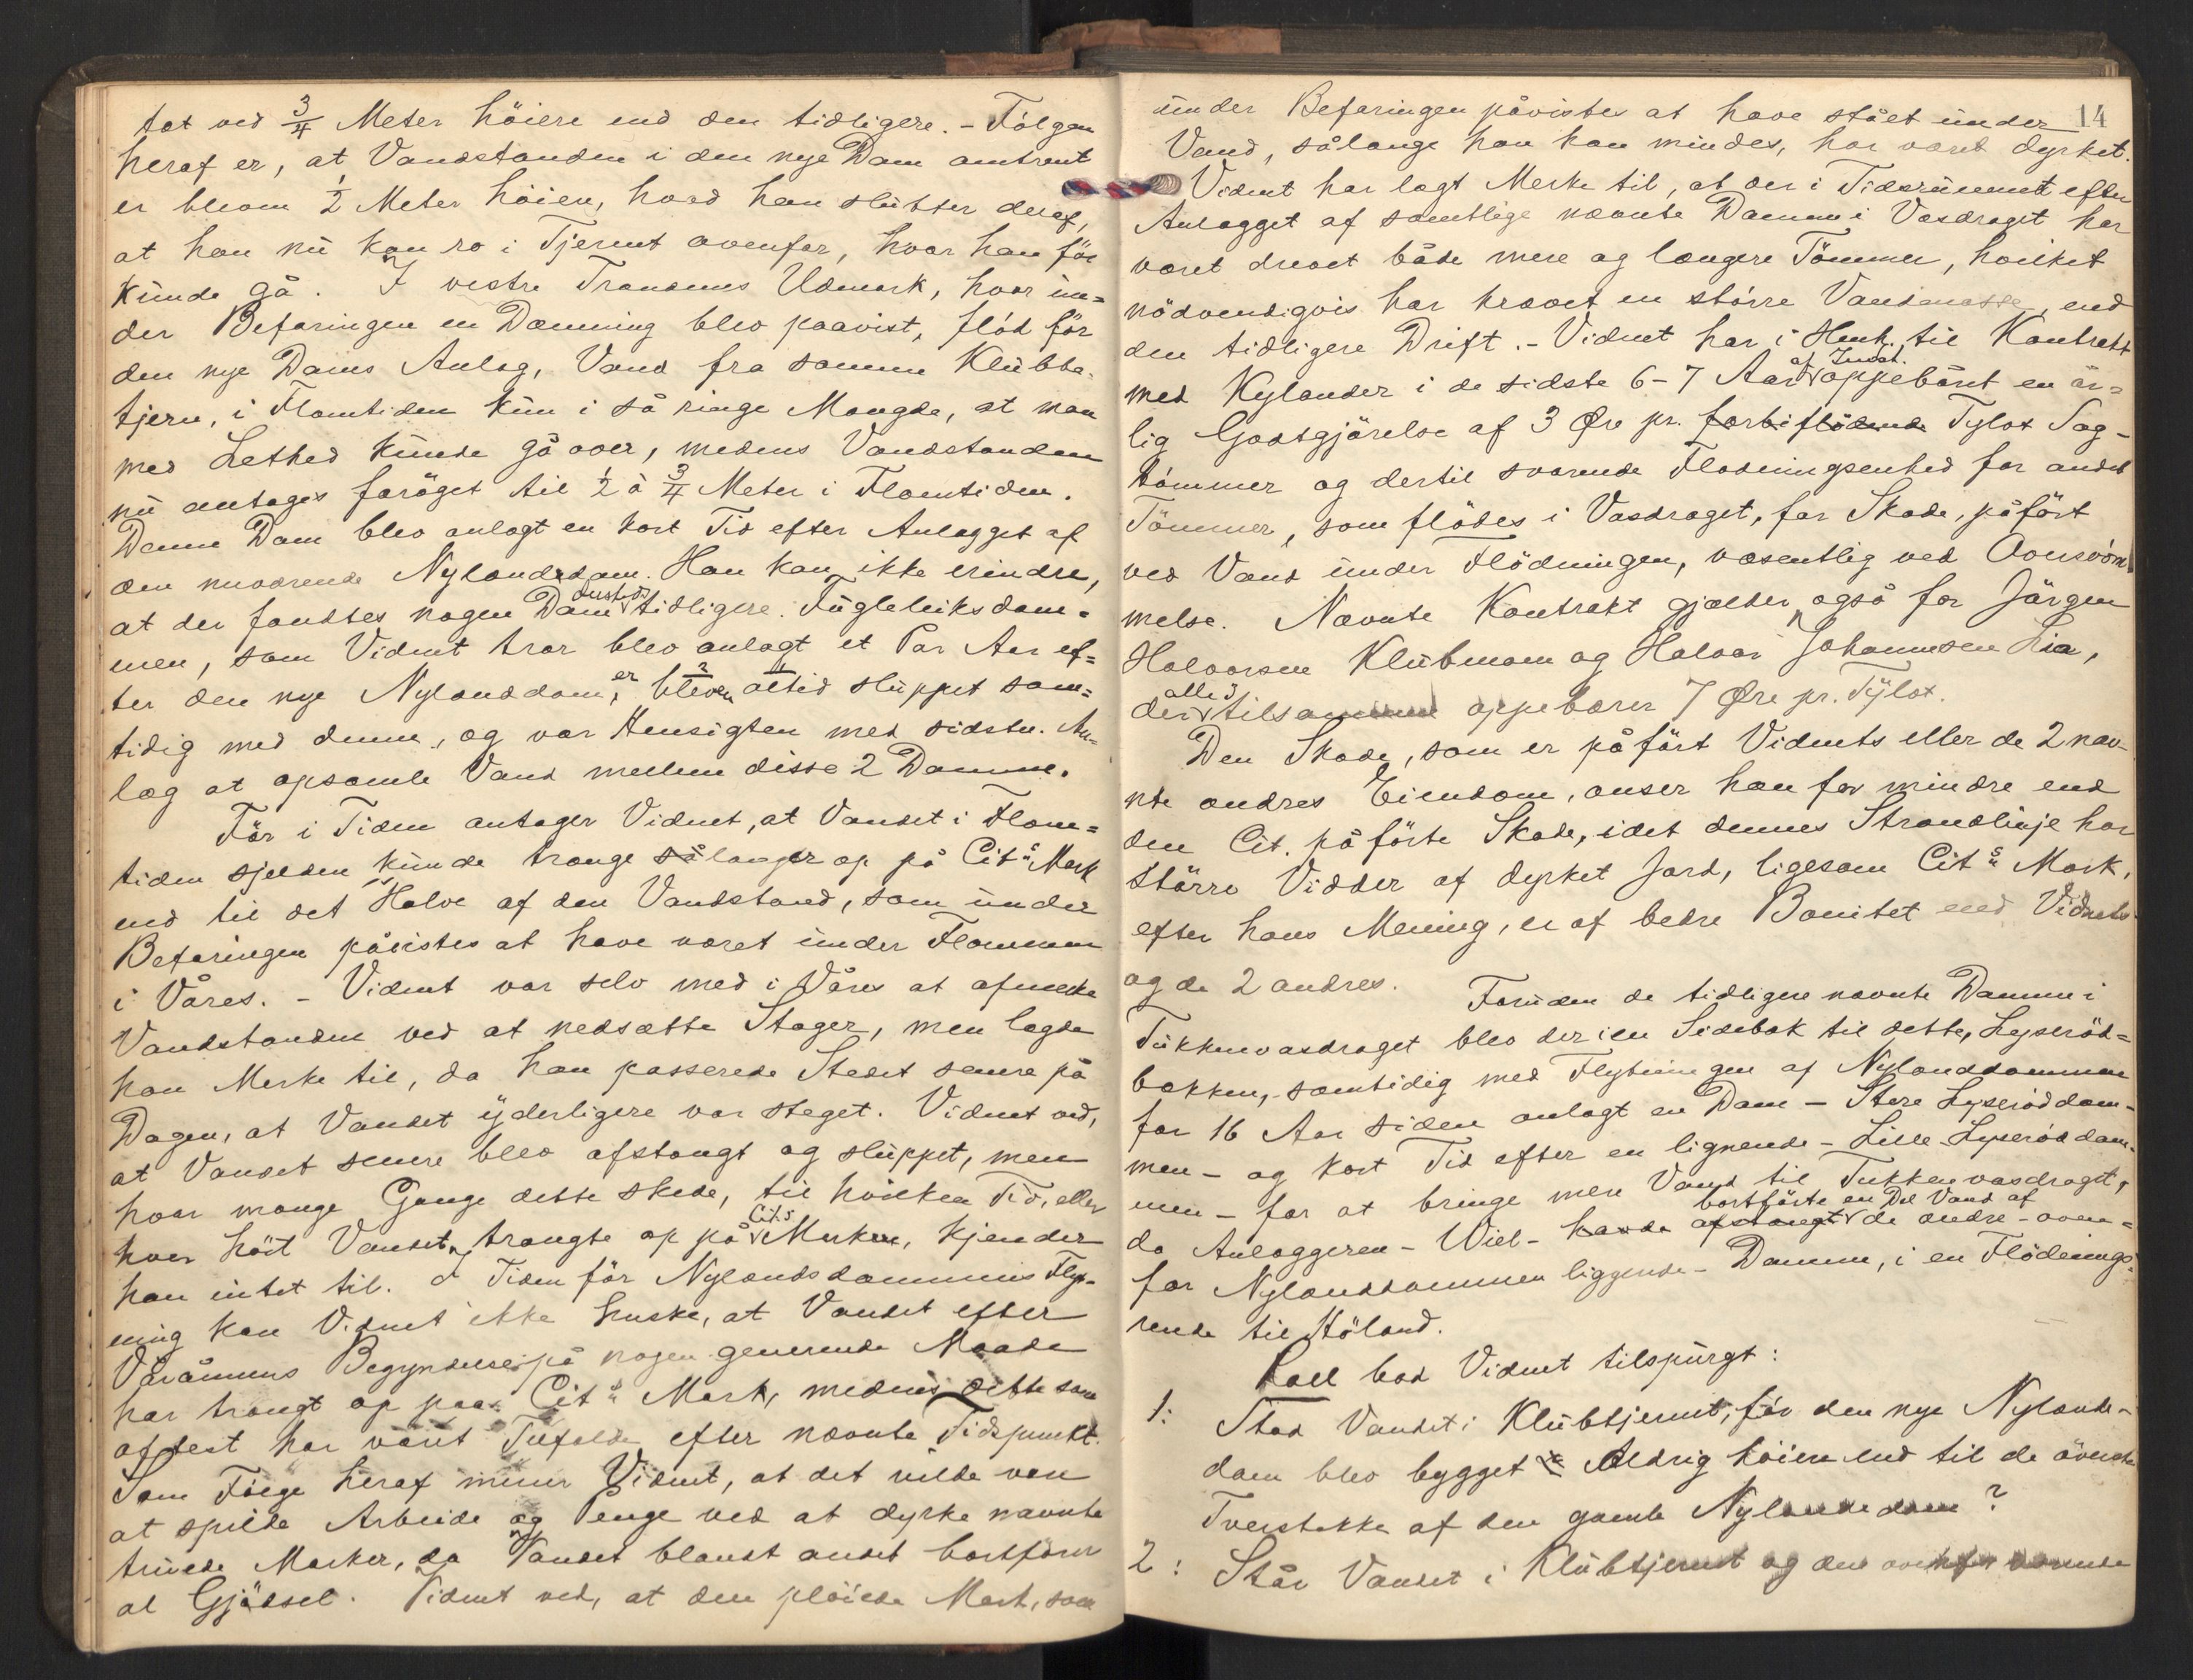 tat ved 3/4 Meter höiere end den tidligere. - Følgen
heraf er, at Vandstanden i den nye Dam omtrent
er bleven 1/2 Meter höien, hvad han slutter deraf,
at han nu kan ro i Tjernet ovenfor, hvor han för
kunde gå. I vestre Trandems Udmark, hvor un=
der Befaringen en Dæmning blev paavist, flöd för
den nye Dams Anlæg, Vand fra samme Klubbe-
tjern, i Flomtiden kun i så ringe Mængde, at man
med Lethed kunde gå over, medens Vandstanden
nu antages forøget til 1/2 à 3/4 Meter i Flomtiden.
Denne Dam blev anlagt en kort Tid efter Anlægget af
den nuværende Nylandsdam. Han kan ikke erindre,
at der fandtes nogen Dam tidligere. Fugleleiksdam=
men, som Vidnet tror blev anlagt et Par Aar ef=
ter den nye Nylanddam, er bleven altid sluppet sam=
tidig med denne, og var Hensigten med sidste An=
læg at opsamle Vand mellem disse 2 Damme.
För i Tiden antager Vidnet, at Vandet i Flom=
tiden sjelden kunde trænge så længer op på Cit.s Mark
end til det Halve af den Vandstand, som under
Befaringen påvistes at have været under Flommen
i Våres. - Vidnet var selv med i Våres at afmerke
Vandstanden ved at nedsætte Stager, men lagde
han Merke til, da han passerede Stedet senere på
Dagen, at Vandet yderligere var steget. Vidnet ved,
at Vandet senere blev afstængt og sluppet, men
hvor mange Gange dette skede, til hvilken Tid, eller
hvor höit Vandet trængte op på Cit.s Marker, kjender
han intet til. I Tiden för Nylandsdammens Flyt-
ning kan Vidnet ikke huske, at Vandet efter
Våronnens Begyndelse på nogen generende Maade
har trængt op paa Cit.s Mark, medens dette som
oftest har været Tilfælde efter nævnte Tidspunkt.
Som Følge heraf mener Vidnet, at det vilde være
at spilde Arbeide og Penge ved at dyrke nævnte
truede Marker, da Vandet blandt andet bortförer
al Gjødsel. Vidnet ved, at den pløiede Mark, som
14
under Befaringen påvistes at have stået under
Vand, sålænge han kan mindes, har været dyrket.
Vidnet har lagt Merke til, at der i Tidsrummet efter
Anlægget af samtlige nævnte Damme i Vasdraget har
været drevet både mere og længere Tömmer, hvilket
nödvendigvis har krævet en större Vandmasse, end
den tidligere Drift. - Vidnet har i Henh. til Kontrakt
med Kylander i de sidste 6-7 Aar oppebåret en år=
lig Godtgjörelse af 3 Øre pr. forbiflödende Tylvt Sag-
tömmer og dertil svarende Flødningsenhed for andet
Tömmer, som flödes i Vasdraget, for Skade, påfört
ved Vand under Flödningen, væsentlig ved Oversvøm-
melse. Nævnte Kontrakt gjælder også for Jørgen
Halvorsen Klubmoen og Halvor Johannesen Lia,
der alle 3 tilsammen oppebærer 7 Øre pr. Tylvt.
Den Skade, som er påfört Vidnets eller de 2 næv-
nte andres Eiendom, anser han for mindre end
den Cit. påförte Skade, idet dennes Strandlinje har
Större Vidder af dyrket Jord, ligesom Cit.s Mark,
efter hans Mening, er af bedre Bonitet end Vidnets
og de 2 andres. Foruden de tidligere nævnte Damme i
Tukkenvasdraget blev der i en Sidebæk til dette, Lyseröd=
bækken, samtidig med Flytningen af Nylanddammen
for 16 Aar siden anlagt en Dam - Store Lyseröddam-
men - og kort Tid efter en lignende - Lille Lyseröddam-
men - for at bringe mere Vand til Tukkenvasdraget,
da Anlæggeren - Wiel - havde afstængt bortförte en Del Vand af de andre - oven=
for Nylanddammen liggende - Damme, i en Flödnings-
rende til Höland.
Roll bad Vidnet tilspurgt:
1: Stod Vandet i Klubtjernet, för den nye Nylands-
dam blev bygget Aldrig höiere end til de överste
Tverstokke af den gamle Nylandsdam?
2: Står Vandet i Klubtjernet og den ovenfor værende